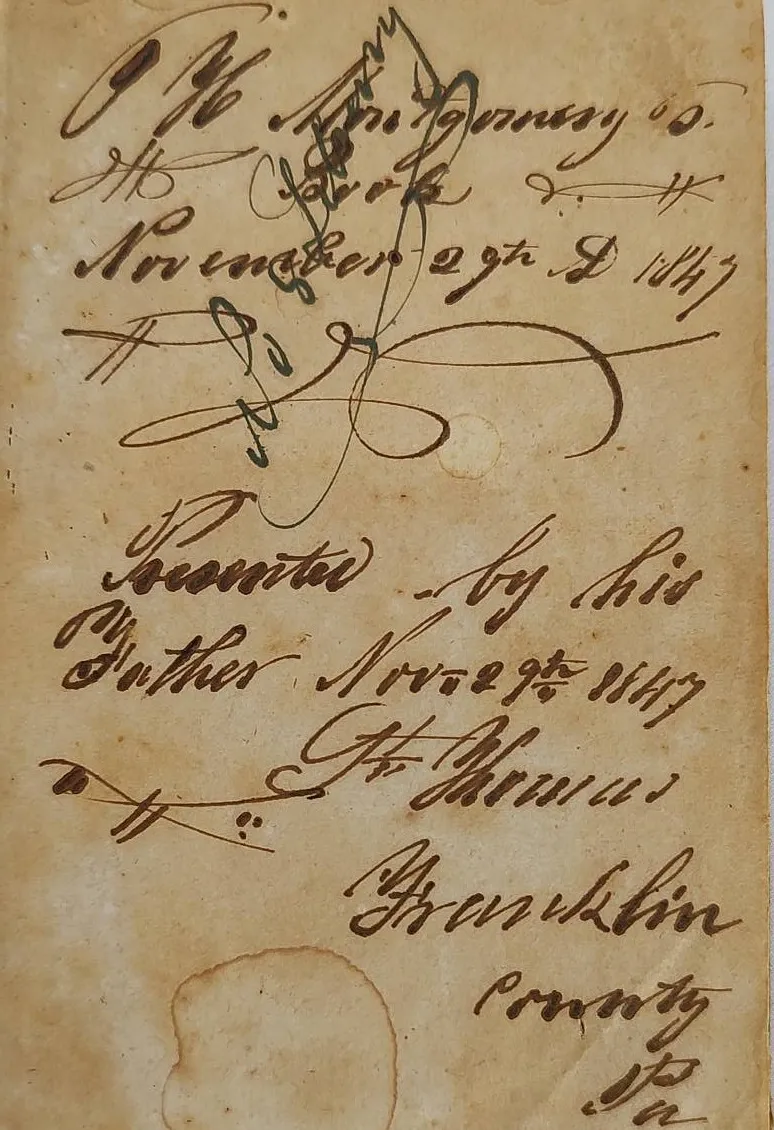 J H Montgomery's.
Book
November 29th AD 1847
Presented by his
Father Nov. 29th 1847
St Thomas
Franklin
County
Pa